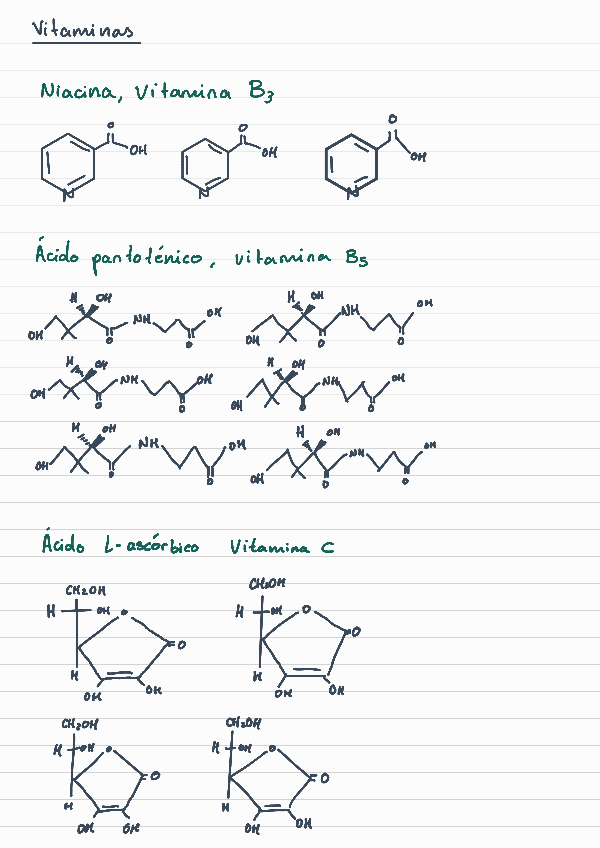 Vitaminas
Niacina, Vitamina B3
O O O
OH OH OH
N N N
Ácido pantoténico, vitamina B5
H OH H OH OH
OH NH OH NH
OH O O OH O O
H OH H OH
OH NH OH NH OH
OH O O OH O O
H OH H OH
OH NH OH NH OH
OH O O OH O O
Ácido L-ascórbico Vitamina C
CH2OH CH2OH
H OH O H OH O
O O
H H
OH OH OH OH
CH2OH CH2OH
H OH O H OH O
O O
H H
OH OH OH OH